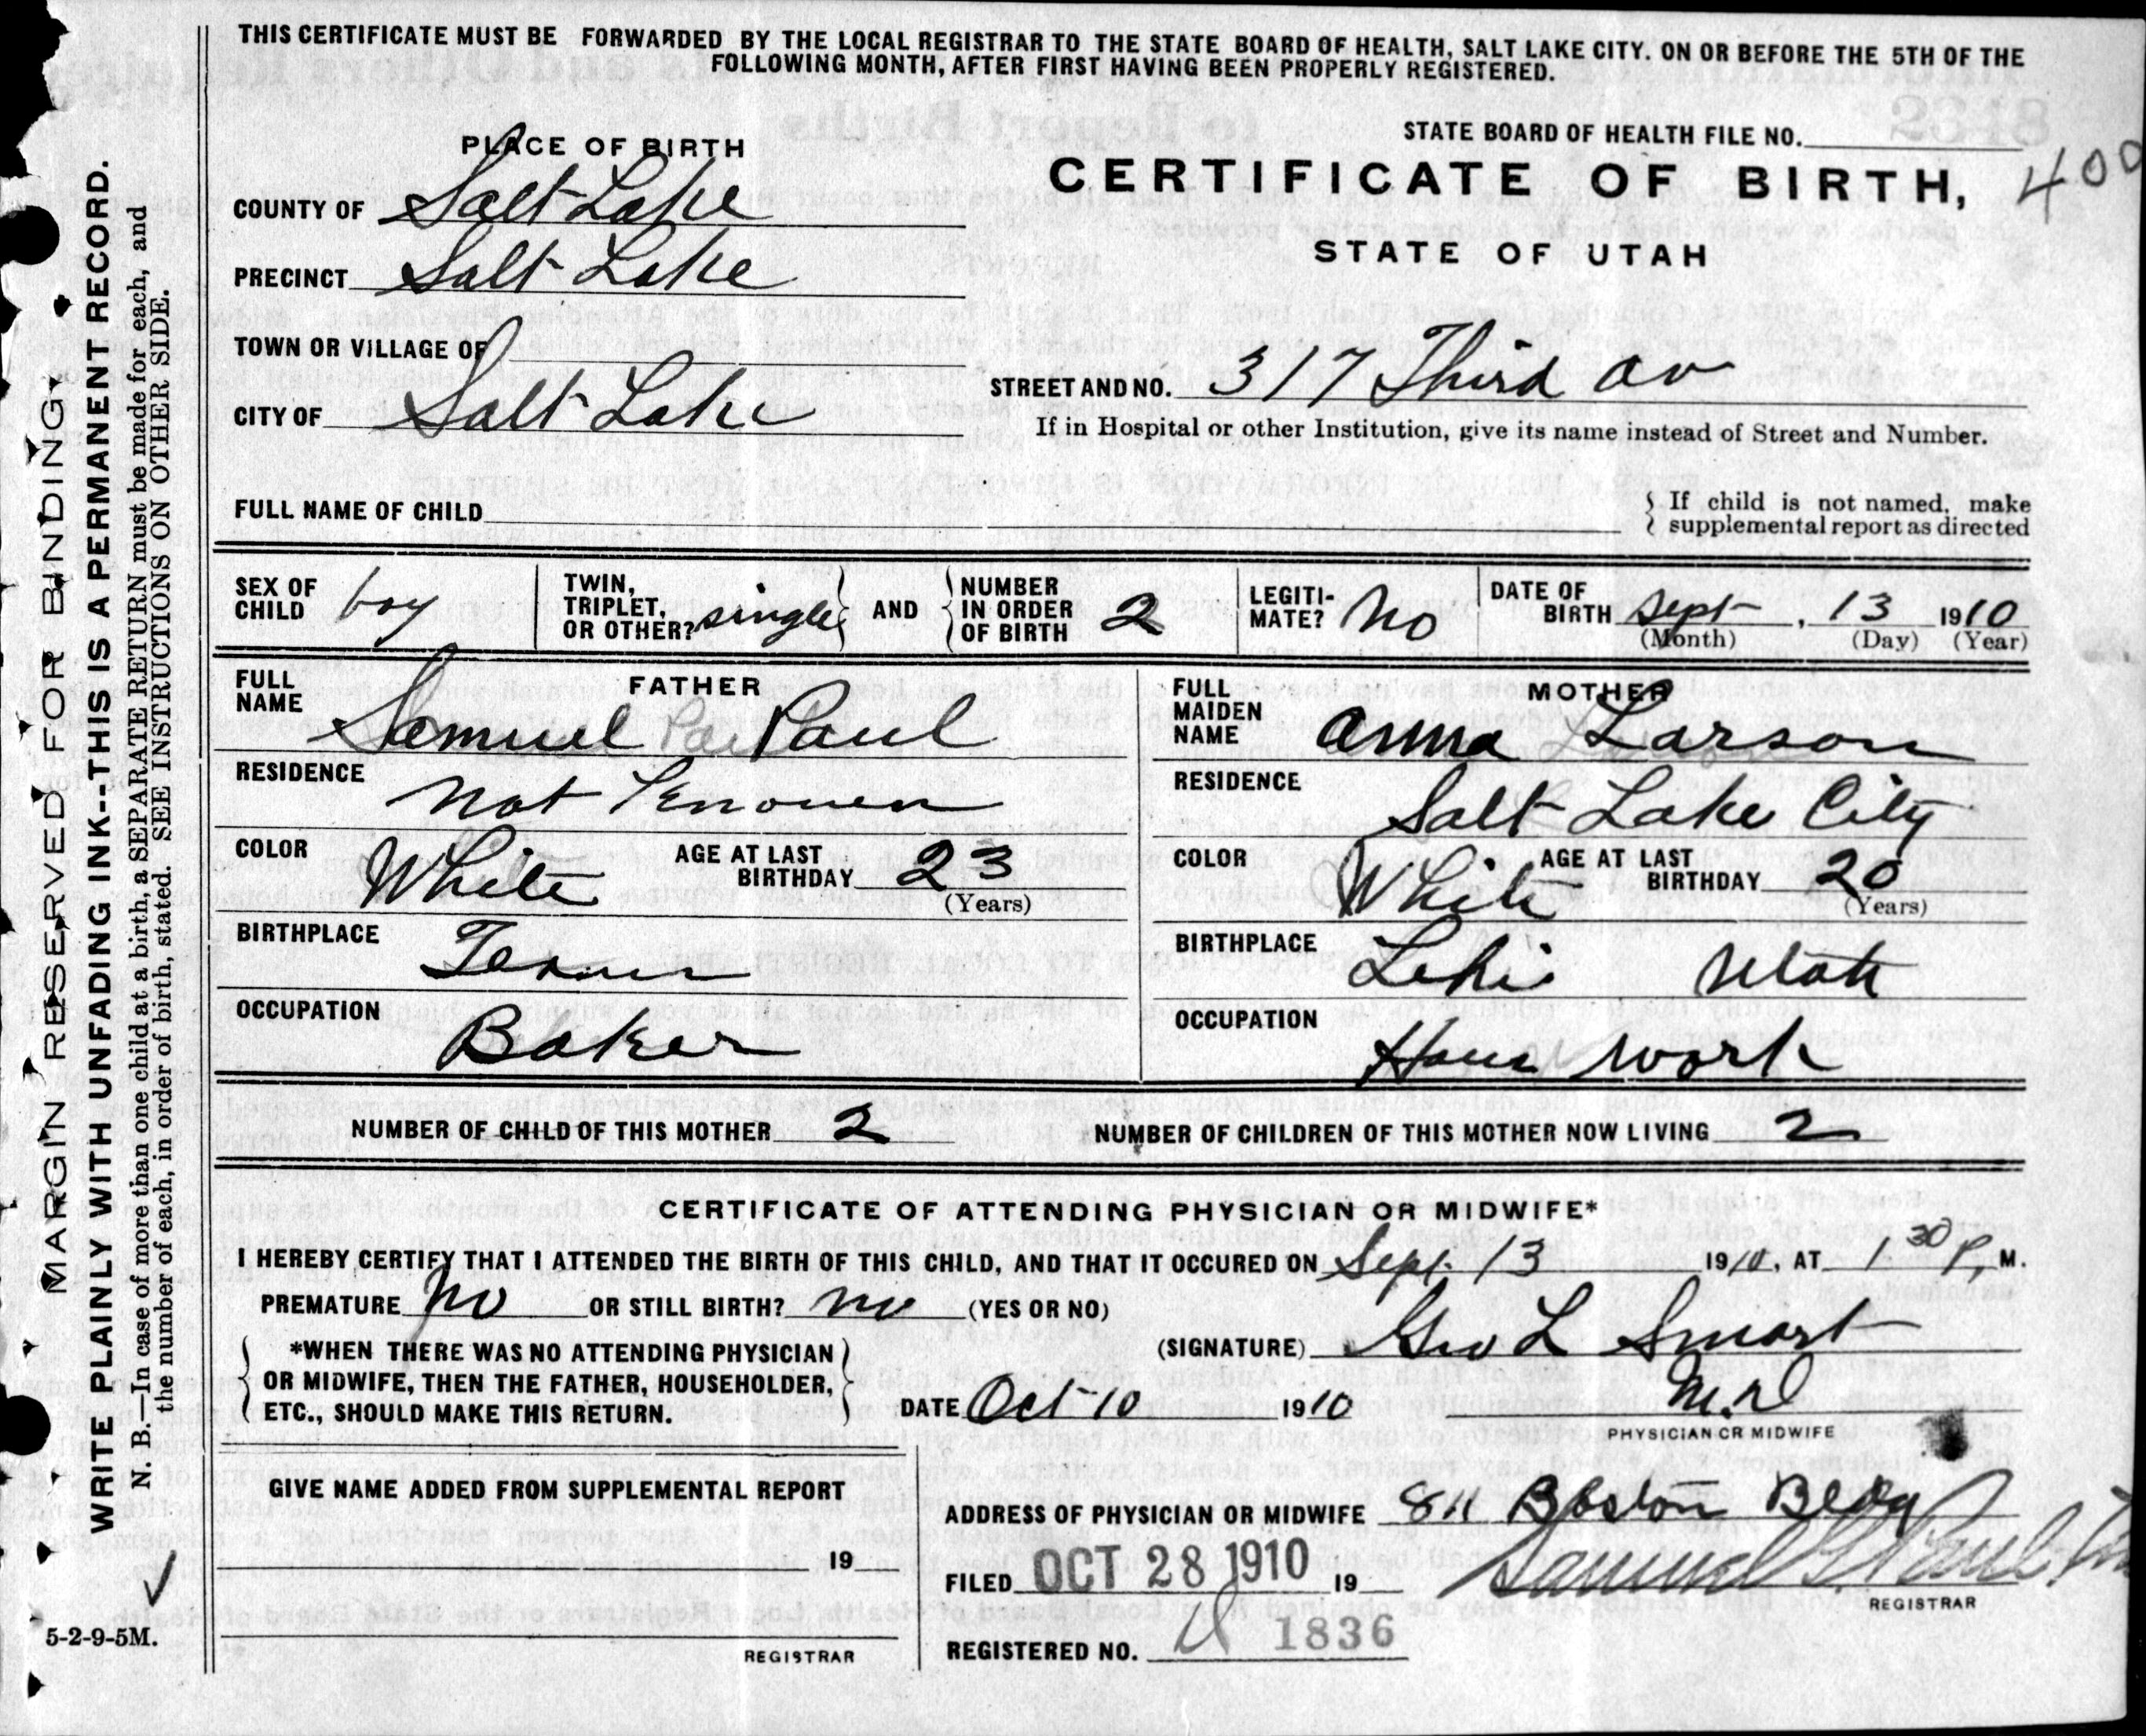 THIS CERTIFICATE MUST BE FORWARDED BY THE LOCAL REGISTRAR TO THE STATE BOARD OF HEALTH, SALT LAKE CITY. ON OR BEFORE THE 5TH OF THE
FOLLOWING MONTH, AFTER FIRST HAVING BEEN PROPERLY REGISTERED.
STATE BOARD OF HEALTH FILE NO.
400
PLACE OF BIRTH
CERTIFICATE OF BIRTH,
STATE OF UTAH
COUNTY OF Salt Lake
PRECINCT Salt Lake
TOWN OR VILLAGE OF
CITY OF Salt Lake
STREET AND NO. 317 Third av
If in Hospital or other Institution, give its name instead of Street and Number.
FULL NAME OF CHILD
If child is not named, make
supplemental report as directed
SEX OF CHILD boy
TWIN, TRIPLET, OR OTHER? single AND NUMBER IN ORDER OF BIRTH 2
LEGITI-MATE? No
DATE OF BIRTH Sept, 13 1910
(Month) (Day) (Year)
FATHER
FULL NAME Samuel Paul
RESIDENCE not Known
COLOR White AGE AT LAST BIRTHDAY 23
(Years)
BIRTHPLACE Texas
OCCUPATION Baker
MOTHER
FULL MAIDEN NAME Anna Larson
RESIDENCE Salt Lake City
COLOR White AGE AT LAST BIRTHDAY 20
(Years)
BIRTHPLACE Lehi Utah
OCCUPATION Hous work
NUMBER OF CHILD OF THIS MOTHER 2 NUMBER OF CHILDREN OF THIS MOTHER NOW LIVING 2
CERTIFICATE OF ATTENDING PHYSICIAN OR MIDWIFE*
I HEREBY CERTIFY THAT I ATTENDED THE BIRTH OF THIS CHILD, AND THAT IT OCCURED ON Sept. 13 1910, AT 1 30 P, M.
PREMATURE No OR STILL BIRTH? no (YES OR NO)
*WHEN THERE WAS NO ATTENDING PHYSICIAN
OR MIDWIFE, THEN THE FATHER, HOUSEHOLDER,
ETC., SHOULD MAKE THIS RETURN.
(SIGNATURE) Geo L Smart
M.D
PHYSICIAN OR MIDWIFE
DATE Oct 10 1910
GIVE NAME ADDED FROM SUPPLEMENTAL REPORT
19
REGISTRAR
ADDRESS OF PHYSICIAN OR MIDWIFE 811 Boston Bldg
FILED OCT 28 1910 19
Samuel G. Paul
REGISTRAR
REGISTERED NO. 1836
MARGIN RESERVED FOR BINDING.
WRITE PLAINLY WITH UNFADING INK--THIS IS A PERMANENT RECORD.
N. B.—In case of more than one child at a birth, a SEPARATE RETURN must be made for each, and
the number of each, in order of birth, stated. SEE INSTRUCTIONS ON OTHER SIDE.
5-2-9-5M.